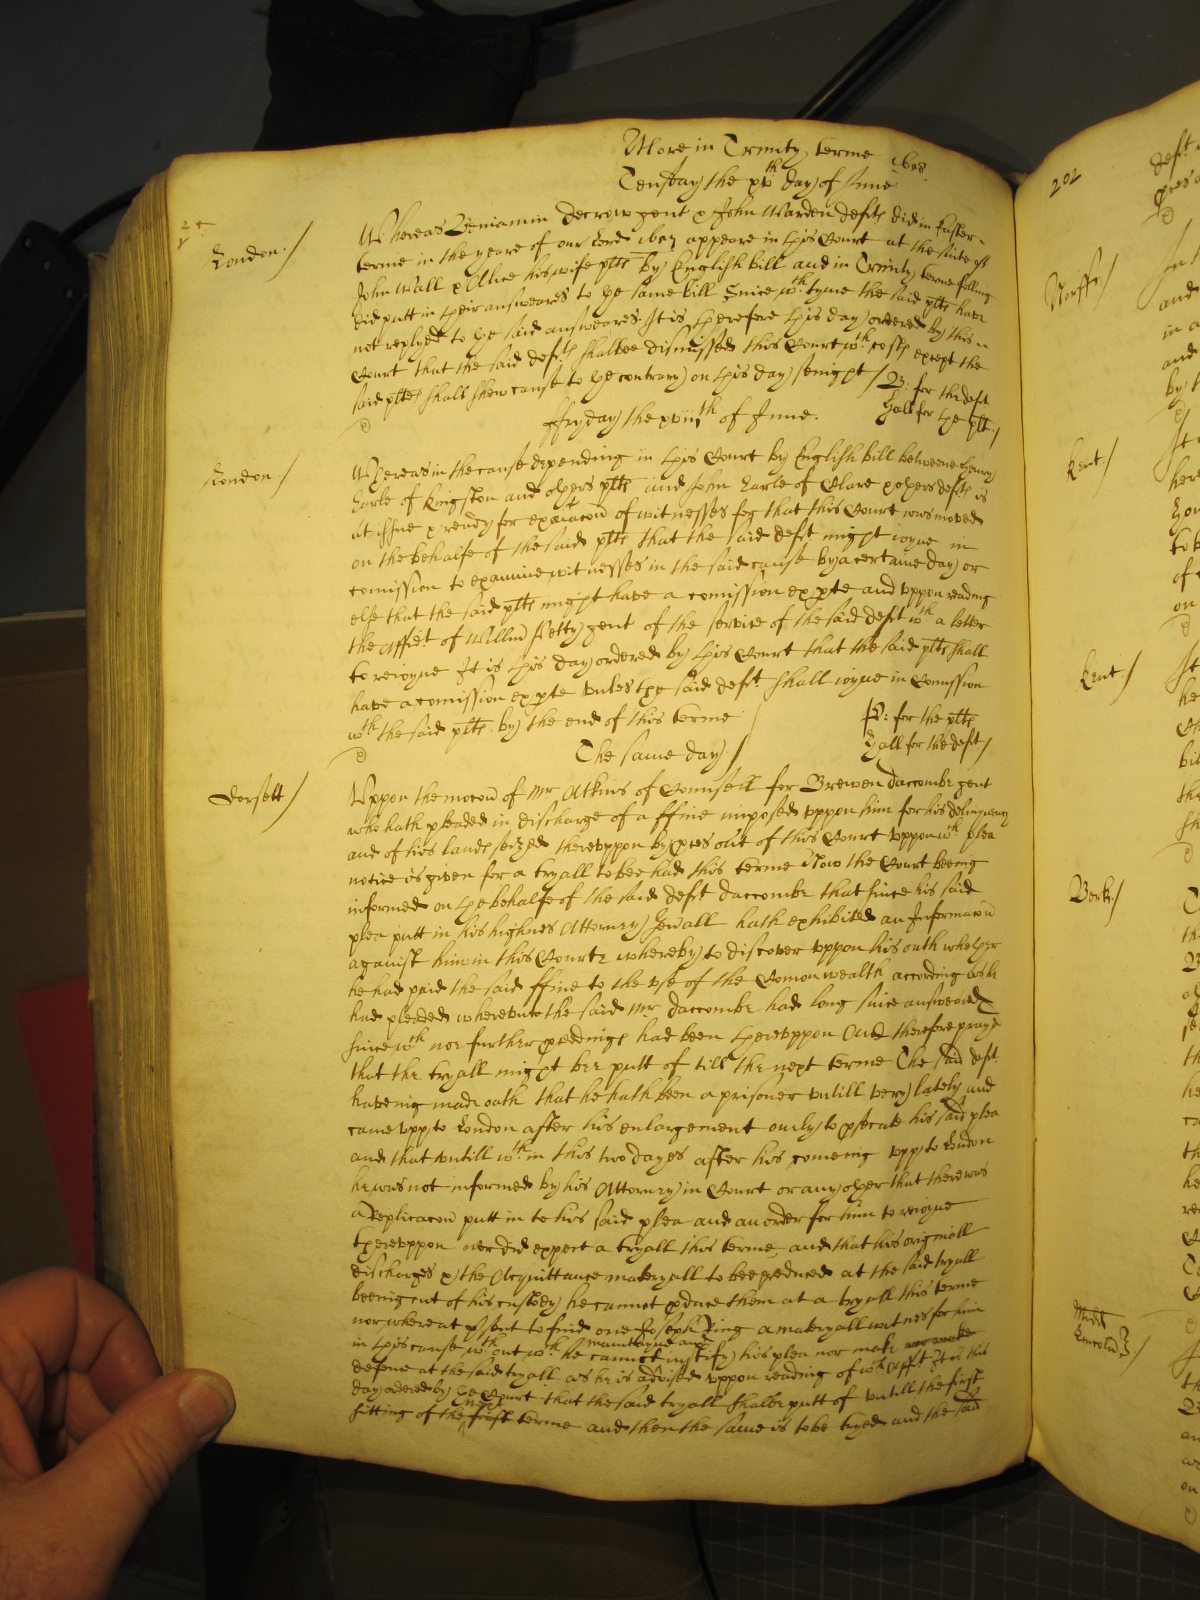 More in Trinity terme 1658
Tewsday the xvth day of June
London /
Whereas Beniamin Decrow gent & John Warden defts did in Easter
terme in the yeare of our Lord 1657 appeare in this Court at the suite of
John Wall & Alice his wife plts by English bill and in Trinity terme following
did putt in their answeares to the same bill Since wch tyme the said plts have
not replyed to the said answeares. It is therefore this day ordered by this
Court that the said defts shalbee dismissed this Court wth costs except the
said plts shall shew cause to the contrary on this day senight /
B: for the deft
Hall for the plts /
ffryday the xviiith of June.
London /
Whereas in the cause depending in this Court by English bill betweene Henry
Earle of Kingston and others plts and John Earle of Clare & others defts is
at issue & ready for exaiacon of witnesses fog that this Court was moved
on the behalfe of the said plts that the said deft might ioyne in
comission to examine witnesses in the said cause by a certaine day or
else that the said plts might have a comission ex pte and vppon reading
the Affidt of Willm Petty gent of the service of the said deft wth a letter
to reioyne It is this day ordered by this Court that the said plts shall
have a comission ex pte vnles the said deft shall ioyne in Comission
wth the said plts by the end of this terme
P: for the plts
Hall for the deft /
The same day /
Dorsett /
Vppon the mocon of Mr Atkins of Counsell for Brewen Daccombe gent
who hath pleaded in discharge of a ffine imposed vppon him for his delinquency
and of his lands seized therevppon by pces out of this Court vppon wch plea
notice is given for a tryall to bee had this terme Now the Court beeing
informed on the behalfe of the said deft Daccombe that since his said
plea putt in his highnes Attorney Genrall hath exhibited an Informacon
against him in this Courte whereby to discover vppon his oath whether
he had paid the said ffine to the vse of the Comonwealth according as he
had pleaded wherevnto the said Mr Daccombe had long since answeared
since wch noe further pceedings had been therevppon And therefore prayd
that the tryall might bee putt of till the next terme The said deft
haveing made oath that he hath been a prisoner vntill very lately and
came vpp to London after his enlargement onely to psecute his said plea
and that vntill wthin this two dayes after his comeing vpp to London
he was not informed by his Attorney in Court or any other that there was
a Replicacon putt in to his said plea and an order for him to reioyne
therevppon nor did expect a tryall this terme and that his originall
discharges & the Acquittance materyall to bee pduced at the said tryall
beeing out of his custody he cannot pduce them at a tryall this terme
nor whereat psent to find one Joseph King a materyall witnes for him
in this cause wthout wch he cannot maintayne and iustify his plea nor make nor make
defence at the said tryall as he is advised vppon reading of wch Afft It is this
day ordered by the Court that the said tryall shalbe putt of vntill the first
sitting of the first next terme and then the same is to be tryed and the said
202
Norff /
Kent /
Kent /
Berk /
Midd
Lincolne /